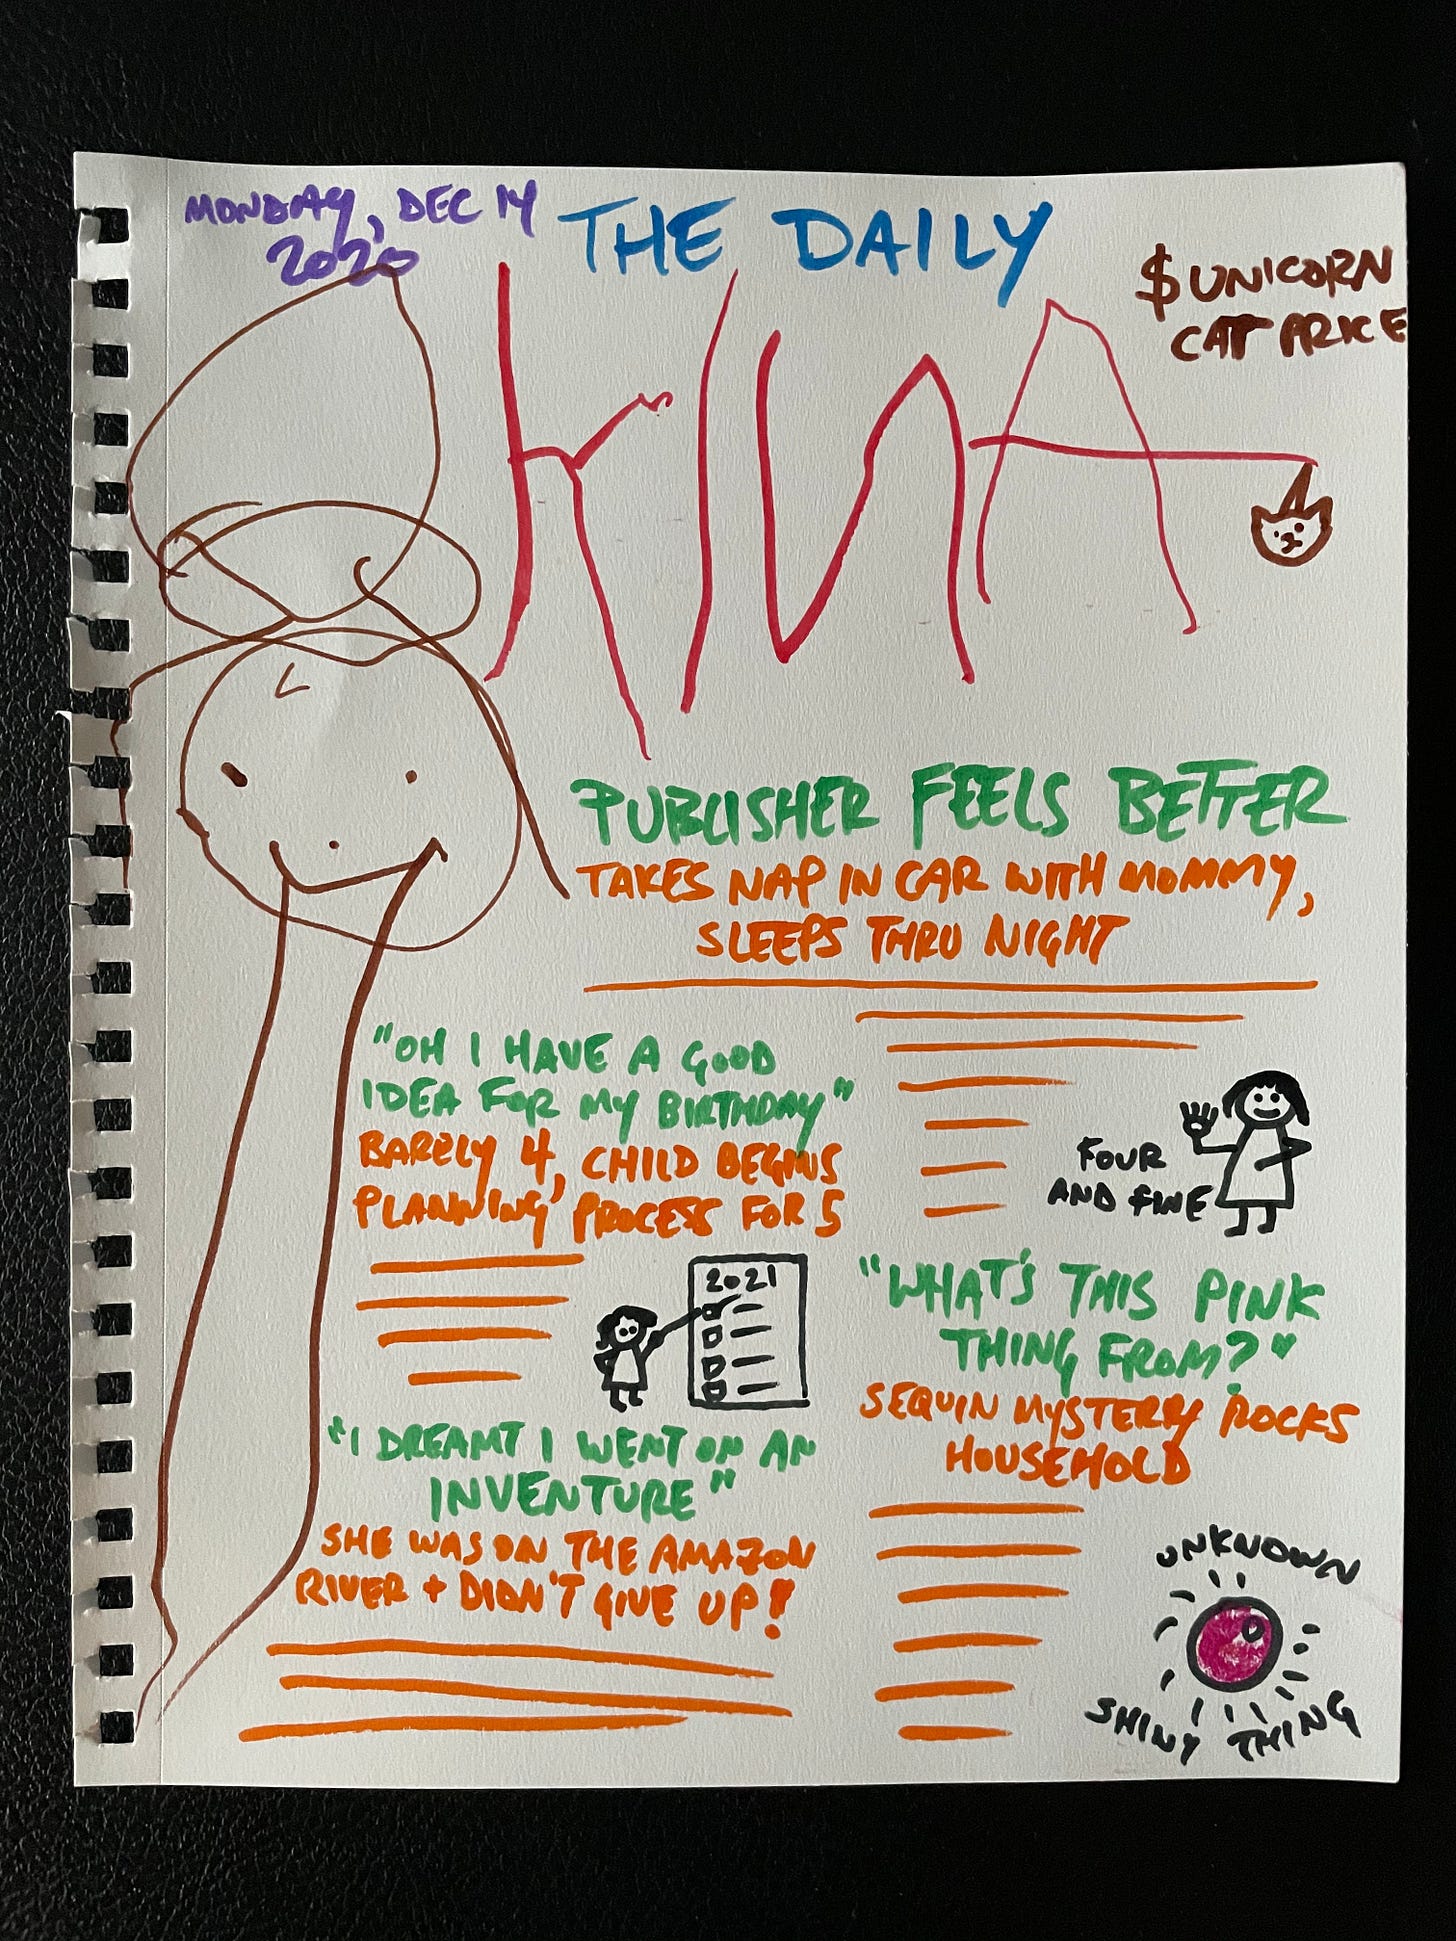 MONDAY, DEC 14
2020
THE DAILY
KINA
$ UNICORN
CAT PRICE
PUBLISHER FEELS BETTER
TAKES NAP IN CAR WITH MOMMY,
SLEEPS THRU NIGHT
"OH I HAVE A GOOD
IDEA FOR MY BIRTHDAY"
BARELY 4, CHILD BEGINS
PLANNING PROCESS FOR 5
2021
"I DREAMT I WENT ON AN
INVENTURE"
SHE WAS ON THE AMAZON
RIVER + DIDN'T GIVE UP!
FOUR
AND FINE
"WHAT'S THIS PINK
THING FROM?"
SEQUIN MYSTERY ROCKS
HOUSEHOLD
UNKNOWN
SHINY THING